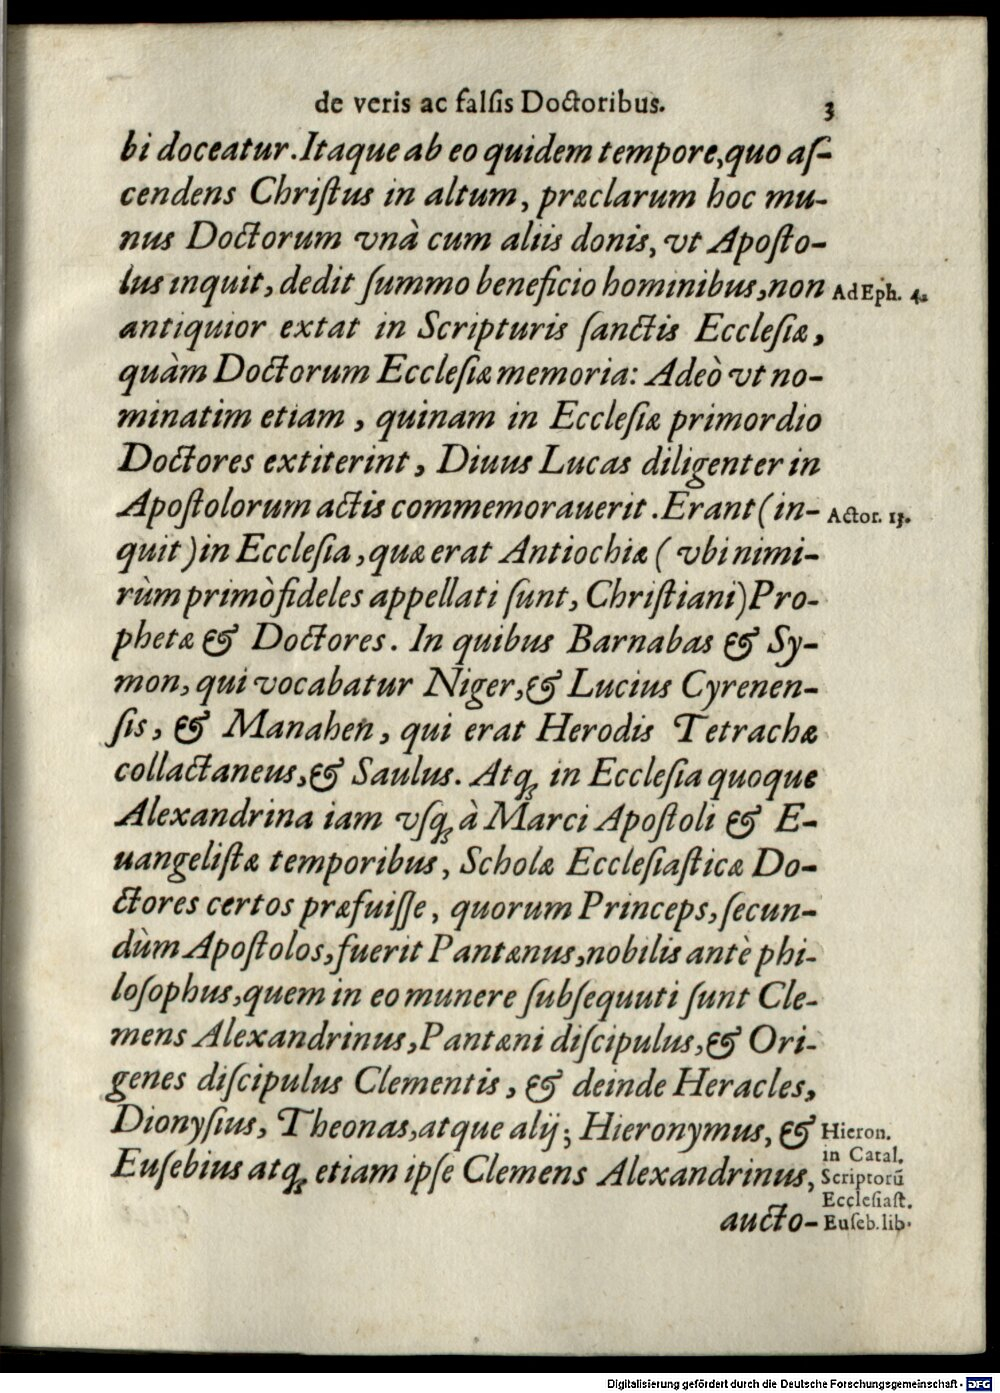 de veris ac falſis Doctoribus. 3
bi doceatur. Itaque ab eo quidem tempore, quo aſ-
cendens Chriſtus in altum, præclarum hoc mu-
nus Doctorum vnà cum aliis donis, vt Apoſto-
lus inquit, dedit ſummo beneficio hominibus, non
Ad Eph. 4.
antiquior extat in Scripturis ſanctis Eccleſiæ,
quàm Doctorum Eccleſiæ memoria: Adeò vt no-
minatim etiam, quinam in Eccleſiæ primordio
Doctores extiterint, Diuus Lucas diligenter in
Apoſtolorum actis commemorauerit. Erant (in-
Actor. 13.
quit) in Eccleſia, quæ erat Antiochiæ (vbi nimi-
rùm primò fideles appellati ſunt, Chriſtiani) Pro-
phetæ & Doctores. In quibus Barnabas & Sy-
mon, qui vocabatur Niger, & Lucius Cyrenen-
ſis, & Manahen, qui erat Herodis Tetrachæ
collactaneus, & Saulus. Atq; in Eccleſia quoque
Alexandrina iam vſq; à Marci Apoſtoli & E-
uangeliſtæ temporibus, Scholæ Eccleſiaſticæ Do-
ctores certos præfuiſſe, quorum Princeps, ſecun-
dùm Apoſtolos, fuerit Pantænus, nobilis antè phi-
loſophus, quem in eo munere ſubſequuti ſunt Cle-
mens Alexandrinus, Pantæni diſcipulus, & Ori-
genes diſcipulus Clementis, & deinde Heracles,
Dionyſius, Theonas, atque alij; Hieronymus, &
Euſebius atq; etiam ipſe Clemens Alexandrinus,
Hieron.
in Catal.
Scriptorū
Eccleſiaſt.
Euſeb. lib.
aucto-
Digitalisierung gefördert durch die Deutsche Forschungsgemeinschaft - DFG